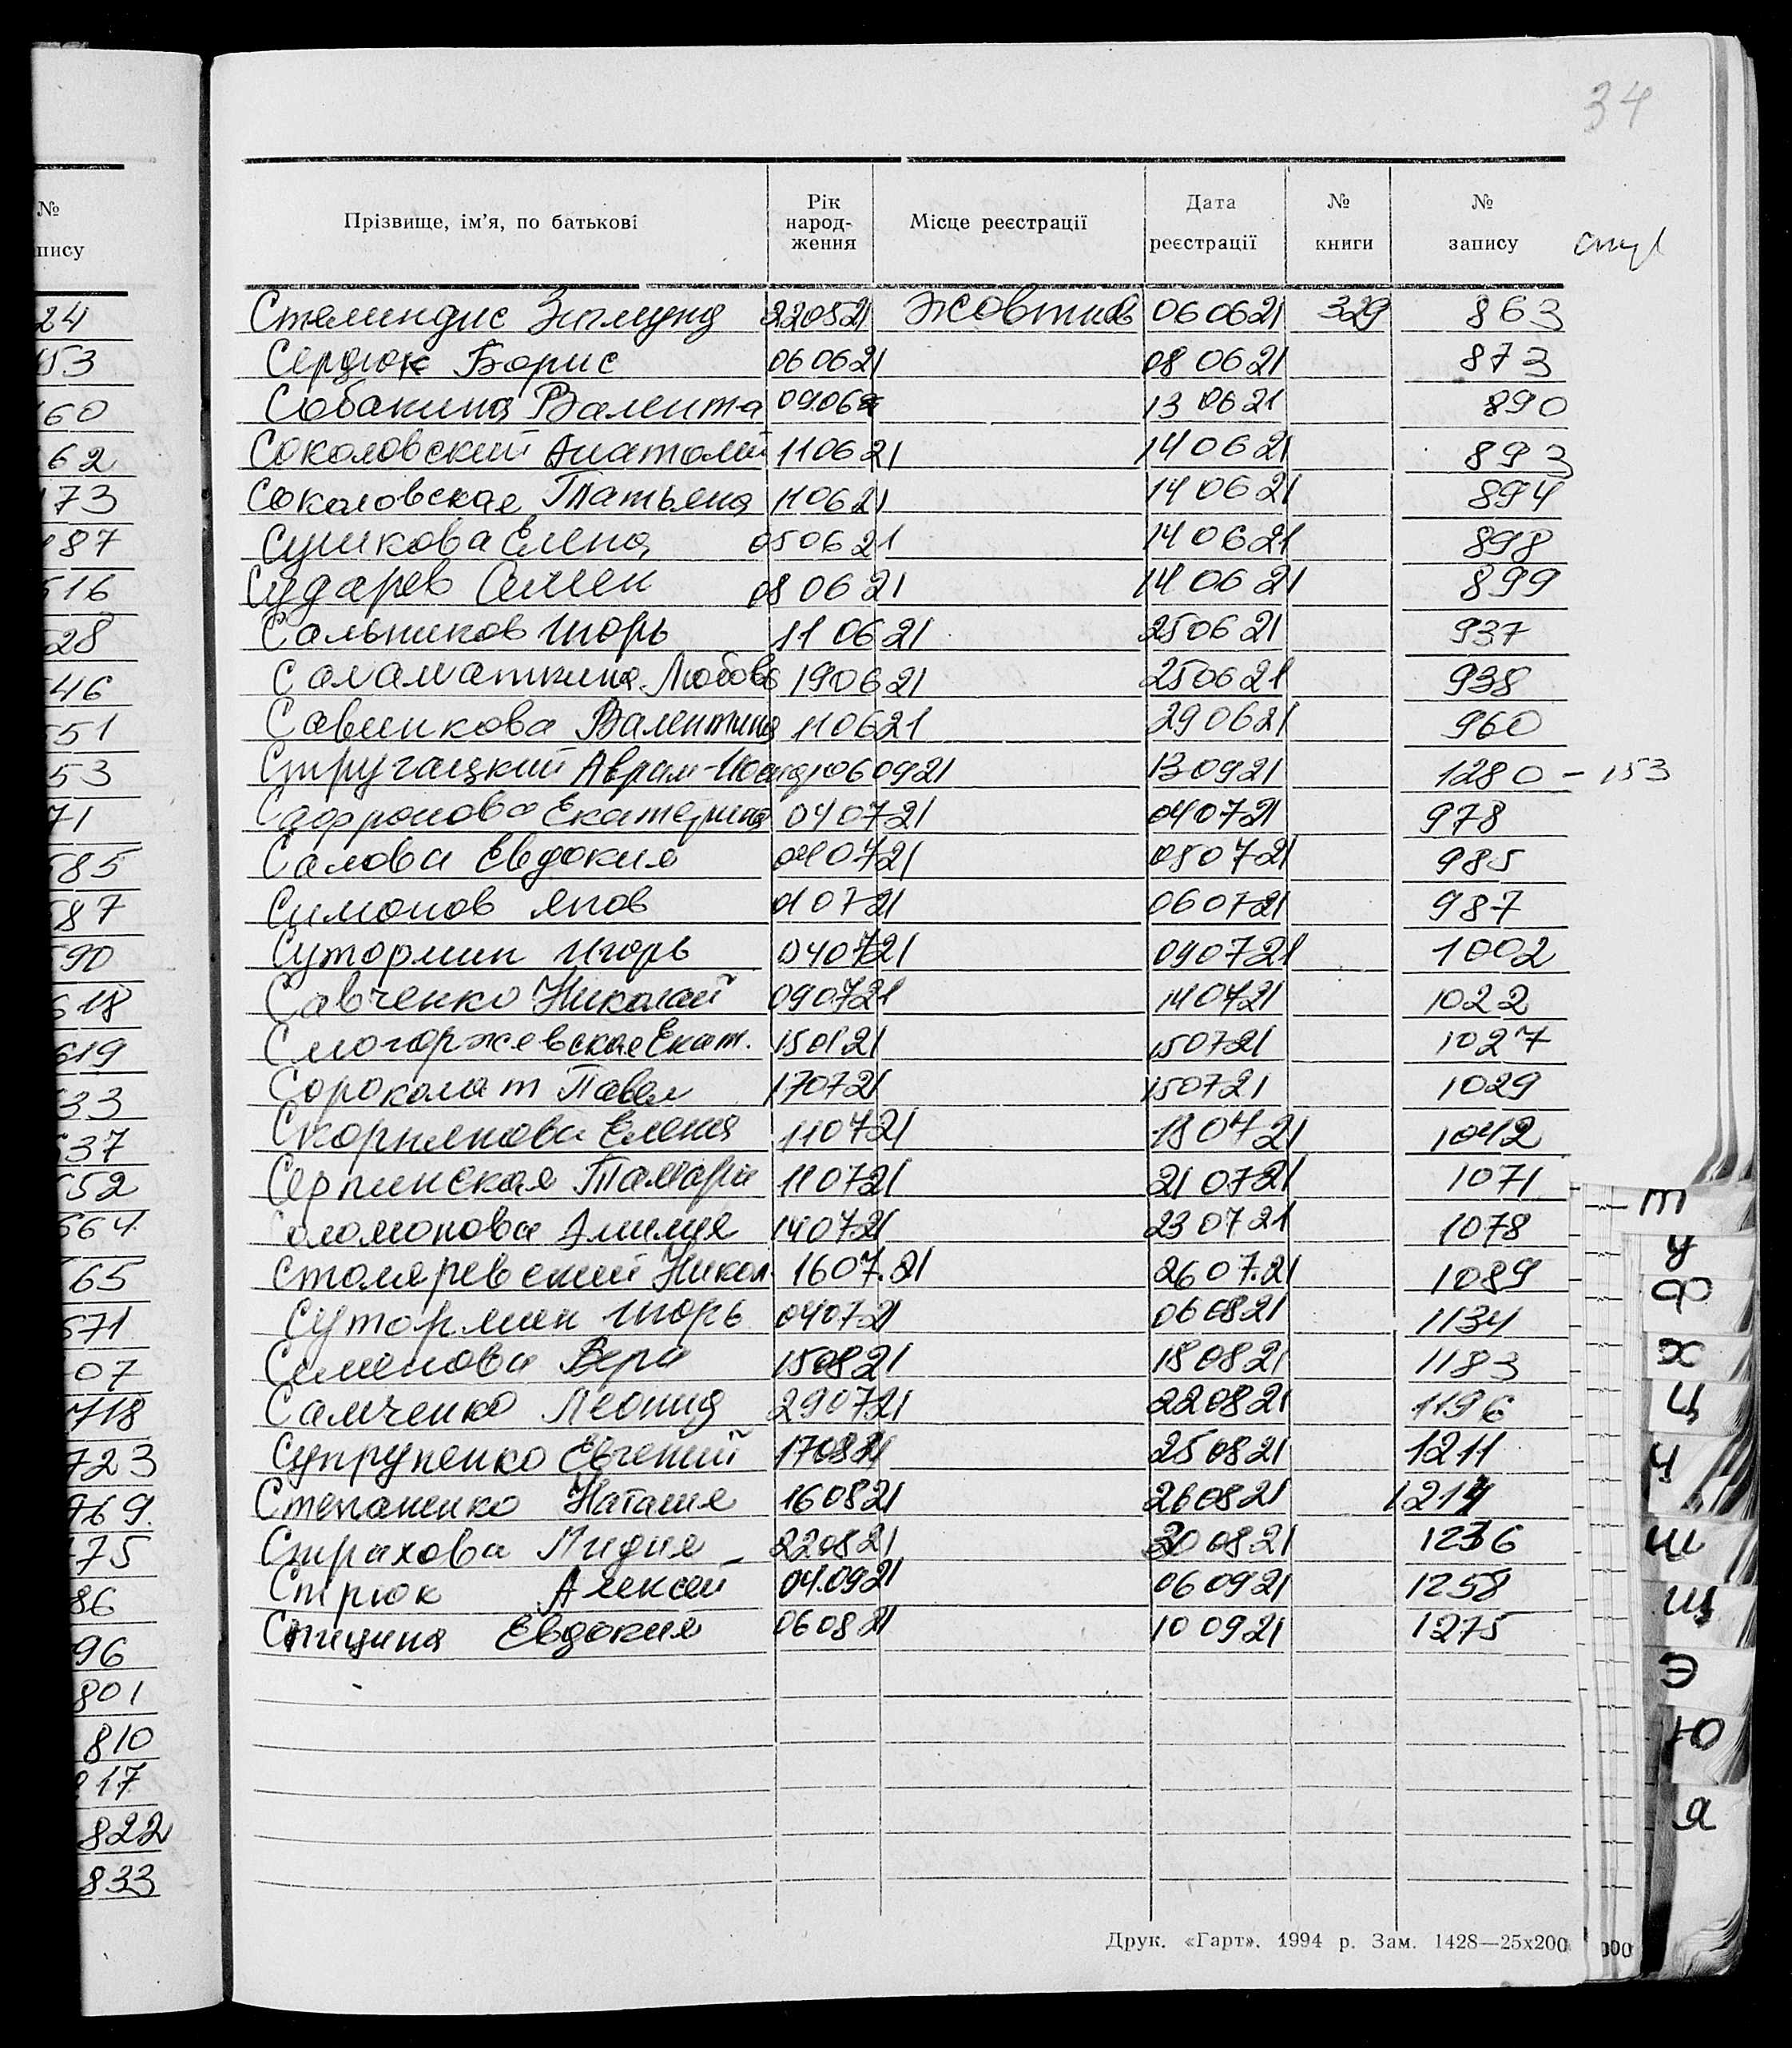 34
№
пису
24
53
60
62
73
87
516
28
46
51
53
71
585
587
590
618
619
33
37
652
664
65
671
07
718
723
769.
75
86
96
801
810
817
822
833
Прізвище, ім'я, по батькові Рік народ-ження Місце реєстрації Дата реєстрації № книги № запису
Стелиндис Зигмунд 220521 Жовтнев 060621 329 863
Сердюк Борис 060621 080621 873
Собакина Валента 09062 130621 890
Соколовский Анатолий 110621 140621 893
Соколовская Татьяна 110621 140621 894
Сушкова Елена 050621 140621 898
Сударев Семен 080621 140621 899
Сальников Игорь 110621 250621 937
Саламаткина Любовь 190621 250621 938
Савинкова Валентина 110621 290621 960
Стругацкий Аврам- 060921 130921 1280 - 153
Сафронова Екатерина 040721 040721 978
Салова Евдокия 040721 050721 985
Симонов Яков 010721 060721 987
Сутормин Игорь 040721 090721 1002
Савченко Николай 090721 140721 1022
Смогоржевская Екат. 150721 1027
Сороколат Павел 170721 150721 1029
Скорнякова Елена 110721 180721 1042
Серпинская Тамара 110721 210721 1071
Соломонова 140721 230721 1078
Столяревский Никол 1607.21 2607.21 1089
Сутормин Игорь 040721 060821 1134
Семенова Вера 150821 180821 1183
Самченко Леонид 290721 220821 1196
Супруненко Евгений 170821 250821 1211
Степаненко Наталия 160821 260821 1214
Страхова Лидия 220821 300821 1236
Стрюк Алексей 04.0921 060921 1258
Спицина Евдокия 060821 100921 1275
Т
У
Ф
Х
Ц
Ч
Ш
Щ
Э
Ю
Я
Друк. «Гарт». 1994 р. Зам. 1428—25х200
000